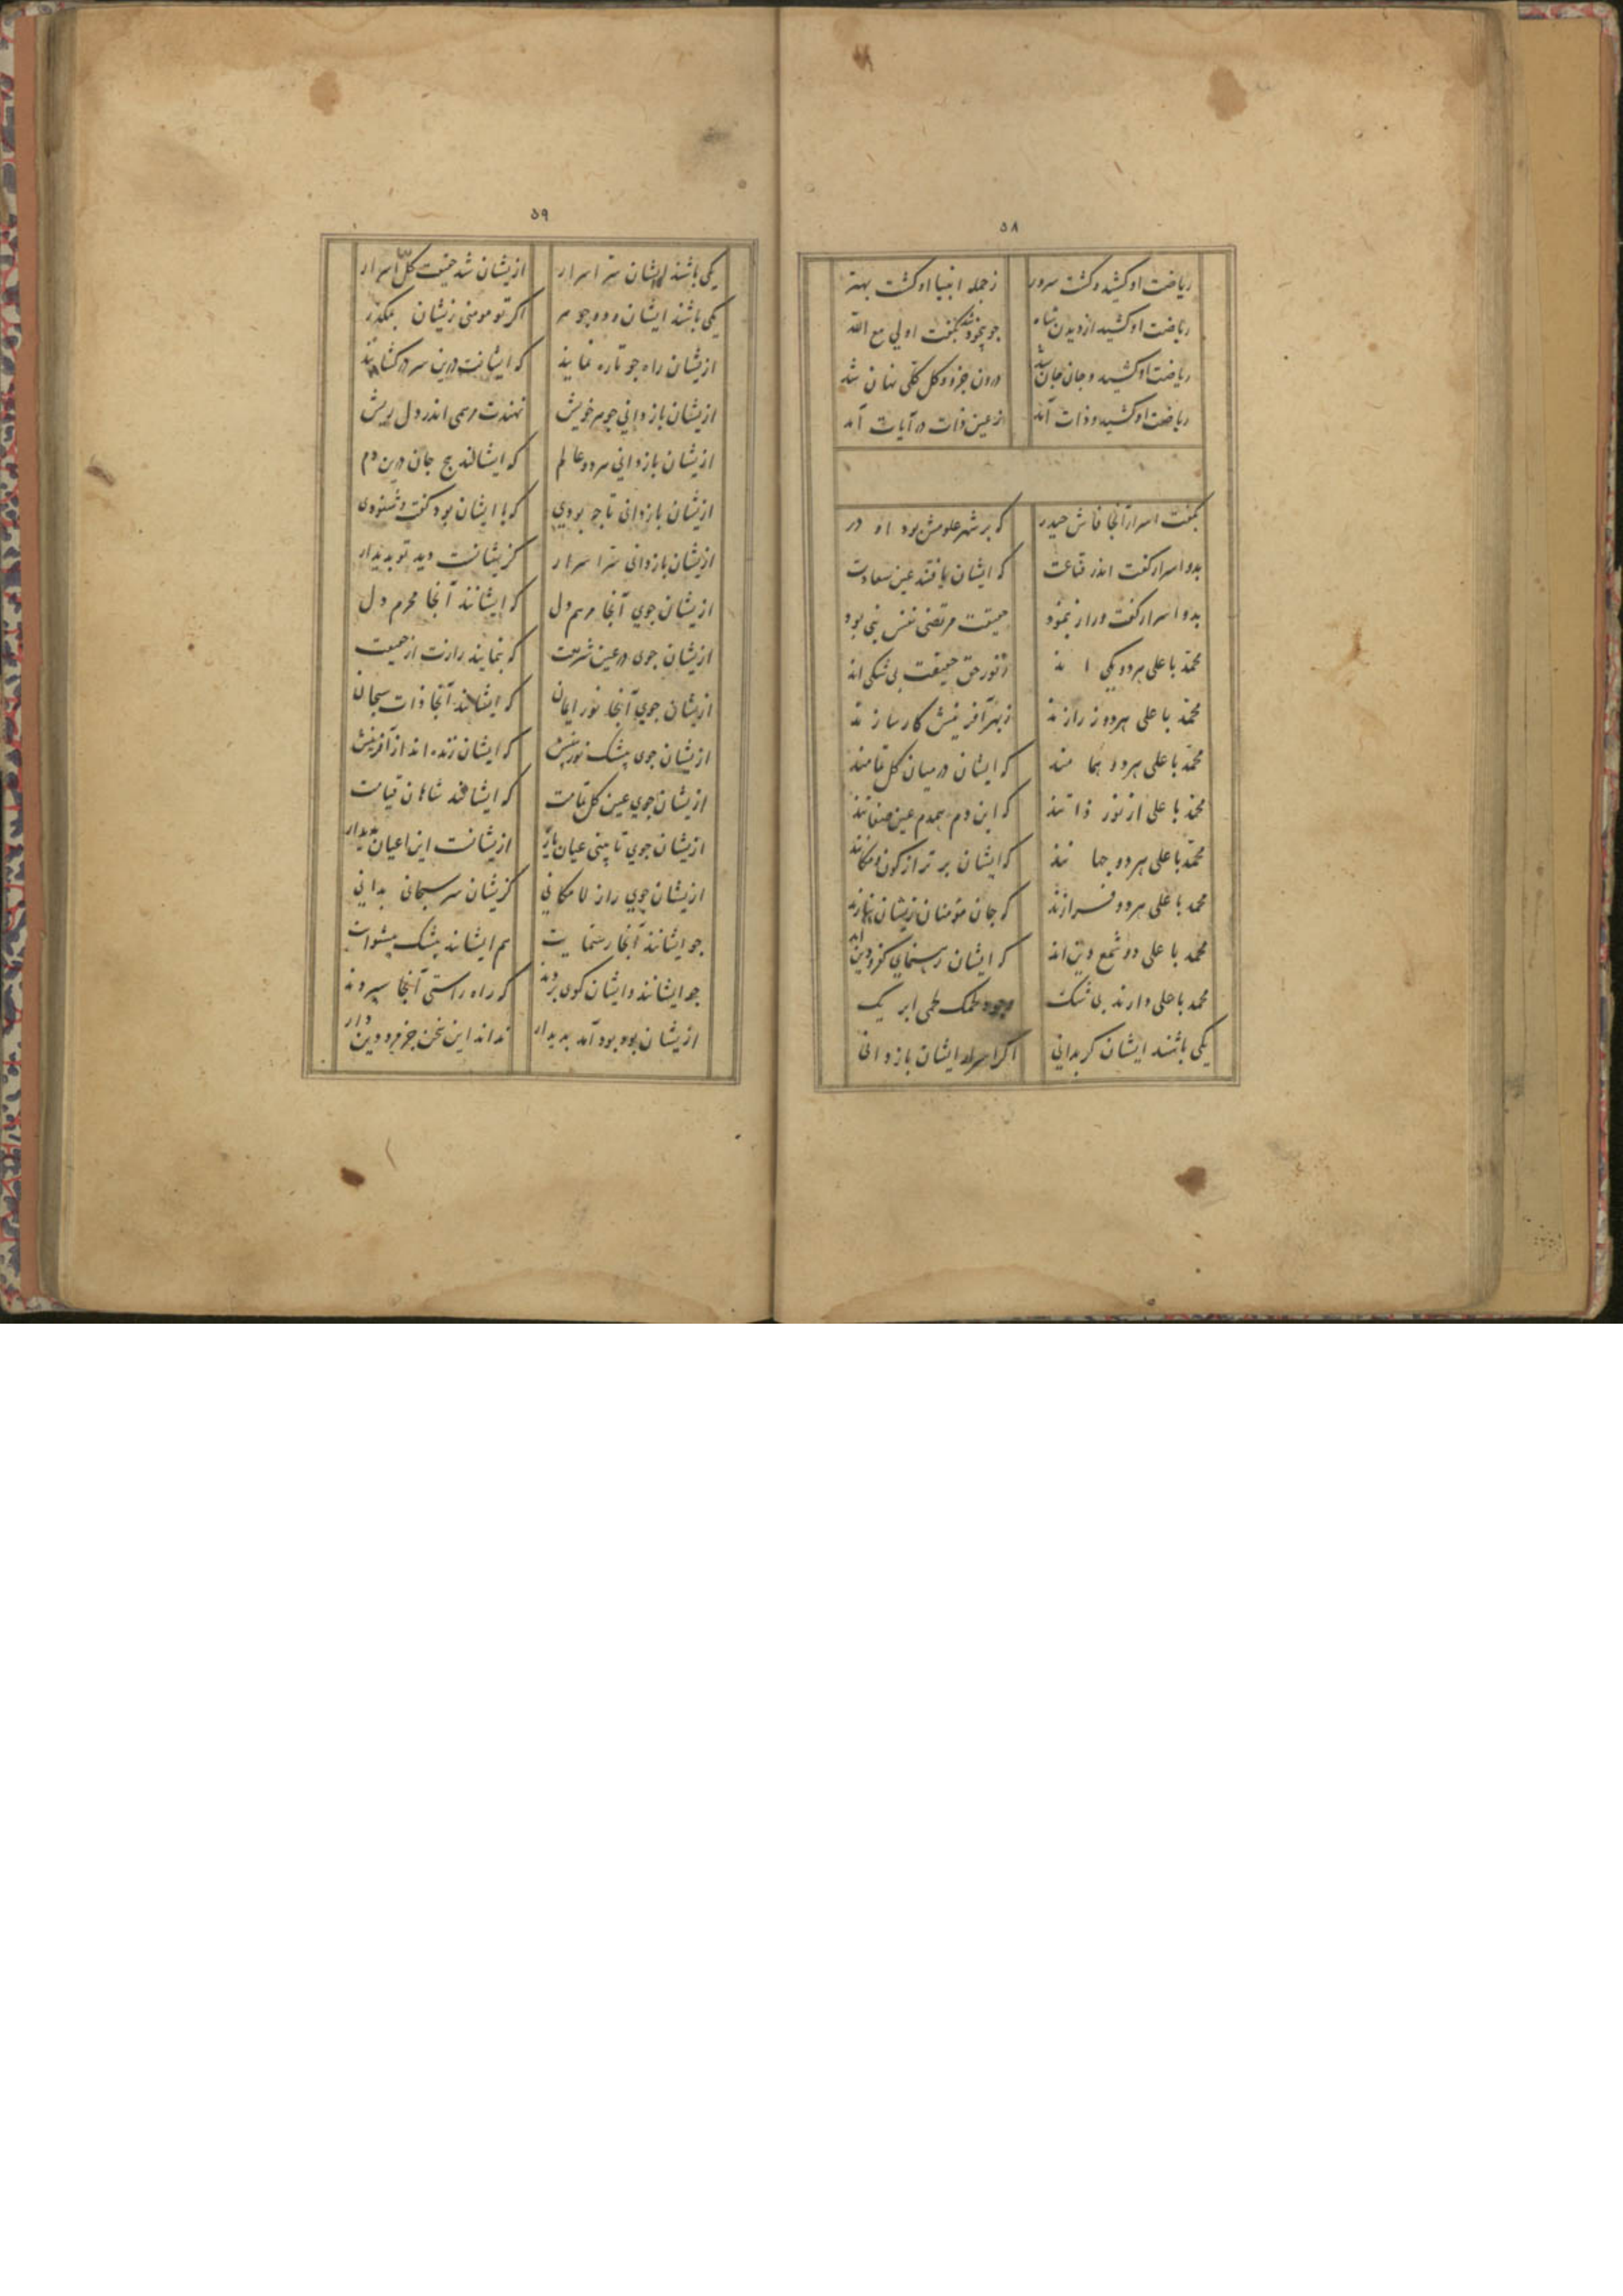 ٥٨
ریاضت او کشید و کشت سرور زجمله انبیا او کشت بهتر
ریاضت او کشید از دیدن شاه جو بیخود شد بکفت او لی مع الله
ریاضت او کشید و جان جان شد درون جزو و کل کلی نهان شد
ریاضت او کشید و ذات آمد ز عین ذات در آیات آمد
بکفت اسرار آنجا فاش حیدر که بر شهر علومش بود او در
بدو اسرار کفت اندر قناعت که ایشان یافتند عین سعادت
بدو اسرار کفت و راز بنمود حقیقت مرتضی نفس نبی بود
محمد با علی هر دو یکی اند ز نور حق حقیقت بی شکی اند
محمد با علی هر دو ز رازند ز بهر آفرینش کارسازند
محمد با علی هر دو همامند که ایشان در میان کل تمامند
محمد با علی از نور ذاتند که این دم همدم عین صفاتند
محمد با علی هر دو جهانند که ایشان برتر از کون و مکانند
محمد با علی هر دو فرازند که جان مؤمنان زیشان بنازند
محمد با علی دو شمع دین اند که ایشان رهنمای کفر و دین اند
محمد با علی دارند بی شک وجود لحمک لحمی ابر یک
یکی باشند ایشان کر بدانی اکر اسرار ایشان باز دانی
٥٩
یکی باشند ایشان سر اسرار ازیشان شد حقیقت کل اسرار
یکی باشند ایشان دو جوهر اکر تو مومنی زیشان بمکذر
ازیشان راه جو تا ره نمایند که ایشانت درین سر در کشایند
ازیشان باز دانی جوهر خویش نهندت مرهمی اندر دل ریش
ازیشان باز دانی هر دو عالم که ایشانند جان درین دم
ازیشان باز دانی تا چه بودی که با ایشان بود کفت و شنودی
ازیشان باز دانی سر اسرار کزیشانست دید تو بدیدار
ازیشان جوی آنجا مرهم دل که ایشانند آنجا محرم دل
ازیشان جوی در عین شریعت که بنمایند رازت از حقیقت
ازیشان جوی آنجا نور ایمان که ایشانند آنجا ذات سبحان
ازیشان جوی بیشک نور بینش که ایشان زنده اند از آفرینش
ازیشان جوی عین کل تمامت که ایشانند شاهان قیامت
ازیشان جوی تا بینی عیان یار ازیشانست این اعیان بدیدار
ازیشان جوی راز لامکانی کزیشان سر سبحانی بدانی
جو ایشانند آنجا رهنمایت هم ایشانند بیشک پیشوایت
جو ایشانند و ایشان کوی بردند که راه راستی آنجا سپردند
ازیشان بود بود آمد بدیدار نداند این سخن جز مرد دین دار